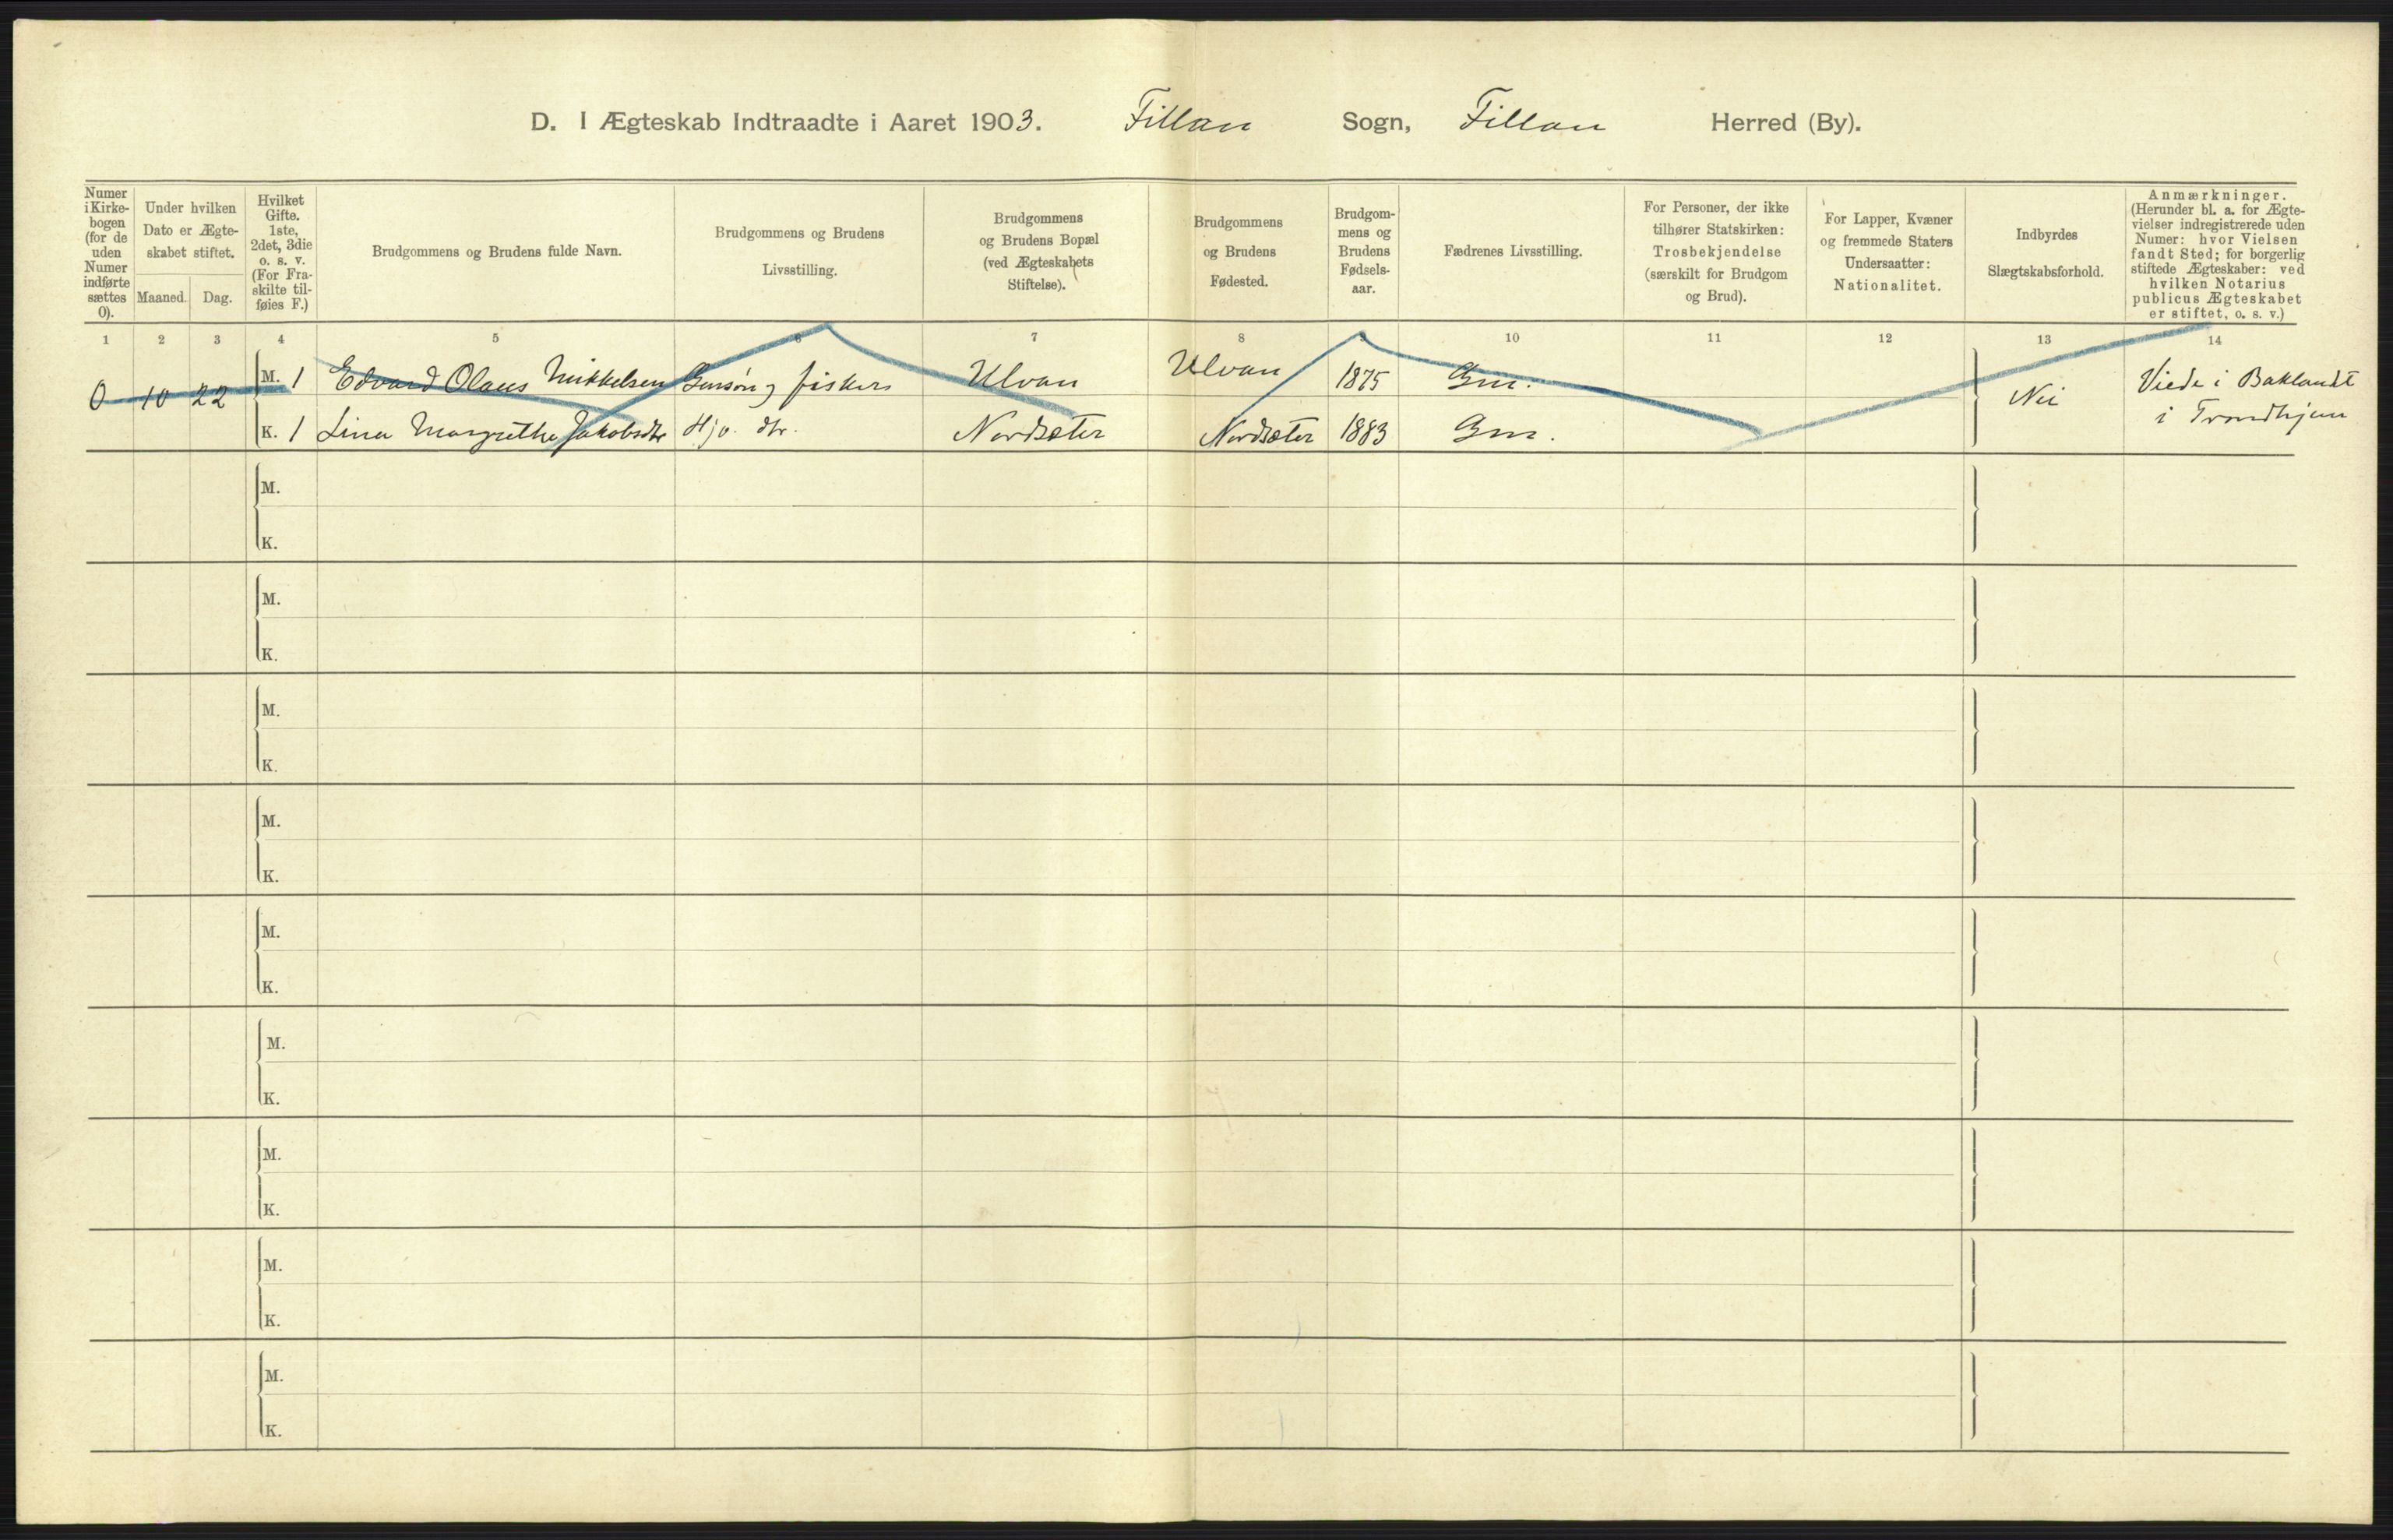 D. I Ægteskab Indtraadte i Aaret 1903. Fillan Sogn, Fillan Herred (By).
Numer
i Kirke-
bogen
(for de
uden
Numer
indførte
sættes
0).
Under hvilken
Dato er Ægte-
skabet stiftet.
Maaned.
Dag.
Hvilket
Gifte.
1ste,
2det, 3die
o. s. v.
(For Fra-
skilte til-
føies F.)
Brudgommens og Brudens fulde Navn.
Brudgommens og Brudens
Livsstilling.
Brudgommens
og Brudens Bopæl
(ved Ægteskabets
Stiftelse).
Brudgommens
og Brudens
Fødested.
Brudgom-
mens og
Brudens
Fødsels-
aar.
Fædrenes Livsstilling.
For Personer, der ikke
tilhører Statskirken:
Trosbekjendelse
(særskilt for Brudgom
og Brud).
For Lapper, Kvæner
og fremmede Staters
Undersaatter:
Nationalitet.
Indbyrdes
Slægtskabsforhold.
Anmærkninger.
(Herunder bl. a. for Ægte-
vielser indregistrerede uden
Numer: hvor Vielsen
fandt Sted; for borgerlig
stiftede Ægteskaber: ved
hvilken Notarius
publicus Ægteskabet
er stiftet, o. s. v.)
1 2 3 4 5 6 7 8 9 10 11 12 13 14
0 10 22
M. 1 Edvard Olaus Mikkelsen Gmsøn, fisker Ulvan Ulvan 1875 Gm.
K. 1 Lina Margrethe Jakobsdtr Hjv. dtr. Nordsæter Nordsæter 1883 Gm.
Nei
Viede i Baklandt
i Trondhjem
M.
K.
M.
K.
M.
K.
M.
K.
M.
K.
M.
K.
M.
K.
M.
K.
M.
K.